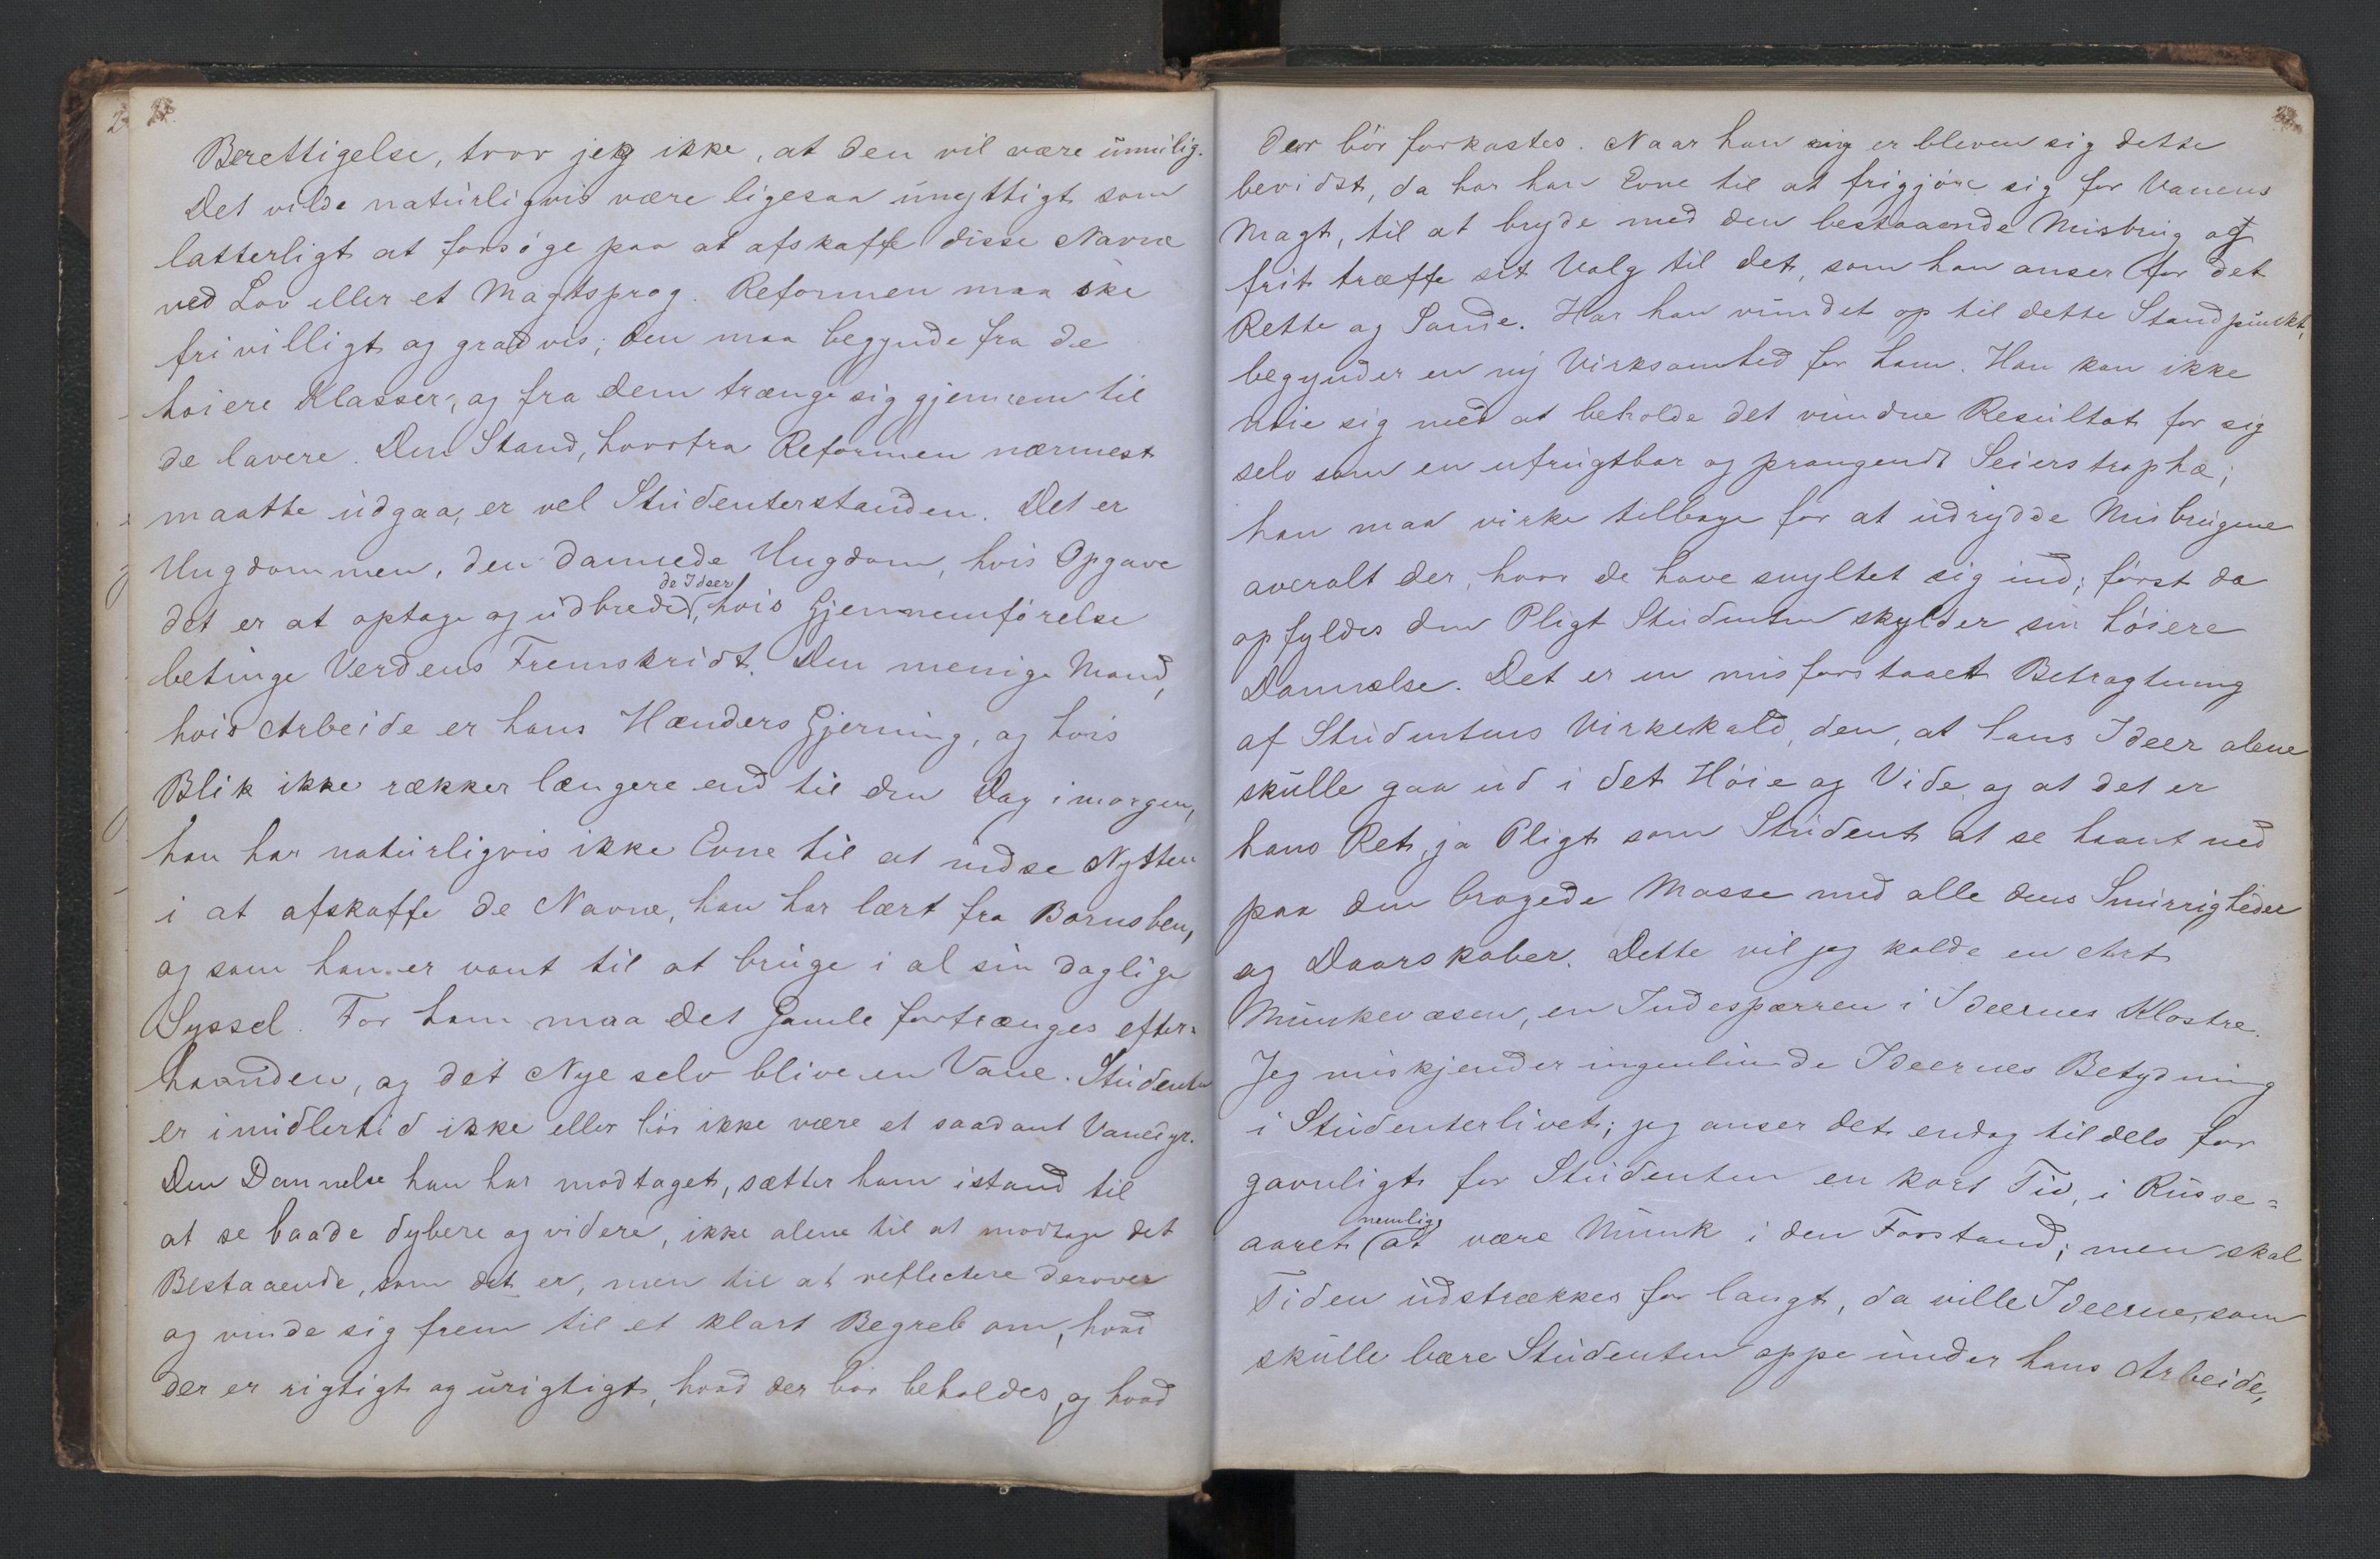 Berettigelse, tror jeg ikke, at den vil være umulig.
Det vilde naturligvis være ligesaa unyttigt som
latterligt at forsøge paa at afskaffe disse Navne
ved Lov eller et Magtsprog. Reformen maa ske
frivilligt og gradvis; den maa begynde fra de
høiere Klasser, og fra dem trænge sig gjennem til
de lavere. Den Stand, hvorfra Reformen nærmest
maatte udgaa, er vel Studenterstanden. Det er
Ungdommen, den dannede Ungdom, hvis Opgave
det er at optage og udbrede de Ideer, hvis Gjennemførelse
betinge Verdens Fremskridt. Den menige Mand,
hvis Arbeide er hans Hænders Gjerning, og hvis
Blik ikke rækker længere end til den Dag imorgen,
han har naturligvis ikke Evne til at indse Nytten
i at afskaffe de Navne, han har lært fra Barnsben,
og som han er vant til at bruge i al sin daglige
Syssel. For ham maa det Gamle fortrænges efter-
haanden, og det Nye selv blive en Vane. Studenten
er imidlertid ikke eller bør ikke være et saadant Vanedyr.
Den Dannelse han har modtaget, sætter ham istand til
at se baade dybere og videre, ikke alene til at modtage det
Bestaaende, som det er, men til at reflectere derover
og vinde sig frem til et klart Begreb om, hvad
der er rigtigt og urigtigt, hvad der bør beholdes, og hvad
der bør forkastes. Naar han er bleven sig dette
bevidst, da har han Evne til at frigjøre sig for Vanens
Magt, til at bryde med den bestaaende Misbrug og
frit træffe sit Valg til det, som han anser for det
Rette og Sande. Har han vundet op til dette Standpunkt,
begynder en ny Virksomhed for ham. Han kan ikke
nøie sig med at beholde det vundne Resultat for sig
selv som en ufrugtbar og prangende Seierstrophæ;
han maa virke tilbage for at udrydde Misbrugene
overalt der, hvor de have snyltet sig ind; først da
opfyldes den Pligt Studenten skylder sin høiere
Dannelse. Det er en misforstaaet Betragtning
af Studentens Virkekald, den, at hans Ideer alene
skulle gaa ud i det Høie og Vide, og at det er
hans Ret, ja Pligt som Student at se haant ned
paa den brogede Masse med alle dens Snurrigheder
og Daarskaber. Dette vil jeg kalde en Art
Munkevæsen, en Indespærren i Ideernes Klostre.
Jeg miskjender ingenlunde Ideernes Betydning
i Studenterlivet; jeg anser det endog tildels for
gavnligt for Studenten en kort Tid, i Russe-
aaret nemlig, at være Munk i den Forstand; men skal
Tiden udstrækkes for langt, da ville Ideerne, som
skulle bære Studenten oppe under hans Arbeide,